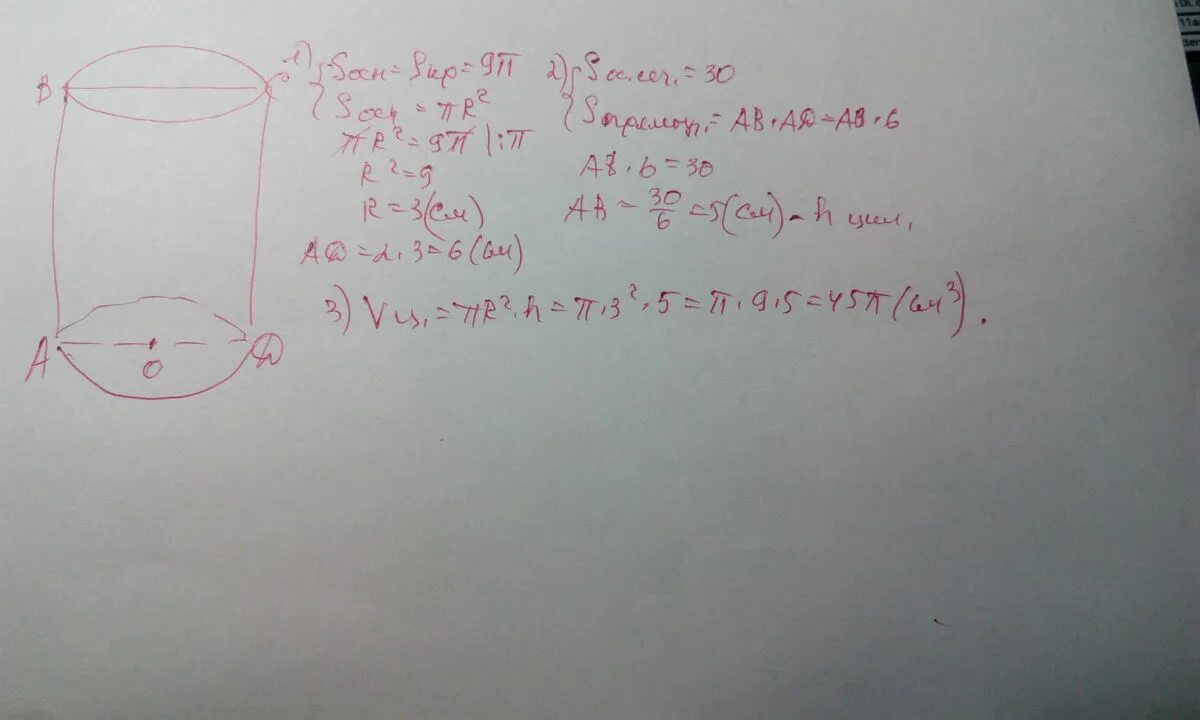 B
C
A
O
D
1) { Sосн = Sкр = 9π
Sосн = πR²
πR² = 9π |:π
R² = 9
R = 3 (см)
AD = 2 · 3 = 6 (см)
2) { Sос.сеч. = 30
Sпрямоуг. = AB · AD = AB · 6
AB · 6 = 30
AB = 30/6 = 5 (см) - h цил.
3) Vц. = πR² · h = π · 3² · 5 = π · 9 · 5 = 45π (см³).